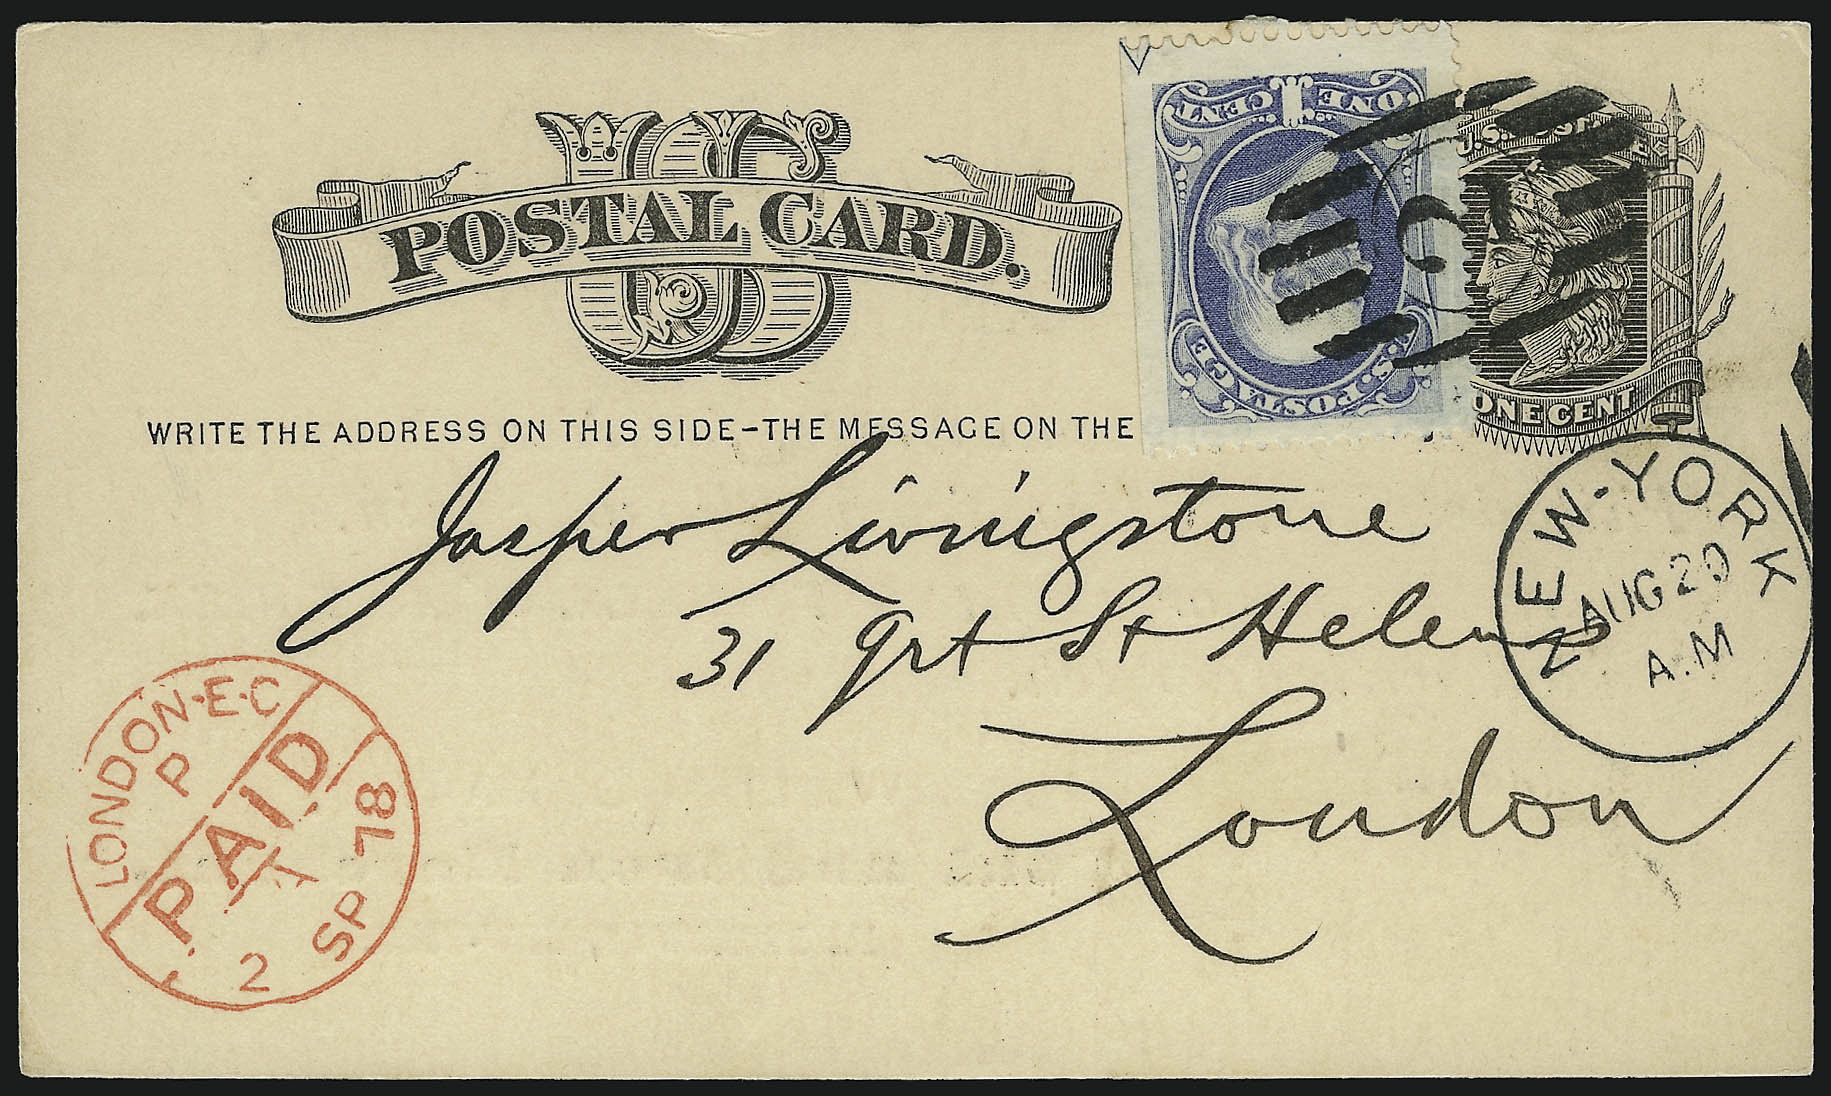 US
POSTAL CARD.
ONE CENT
U.S. POSTAGE
ONE CENT
WRITE THE ADDRESS ON THIS SIDE–THE MESSAGE ON THE
Jasper Livingstone
31 Grt St Helens
London
NEW-YORK
AUG 20
A.M
LONDON·E·C
P
PAID
2 SP 78